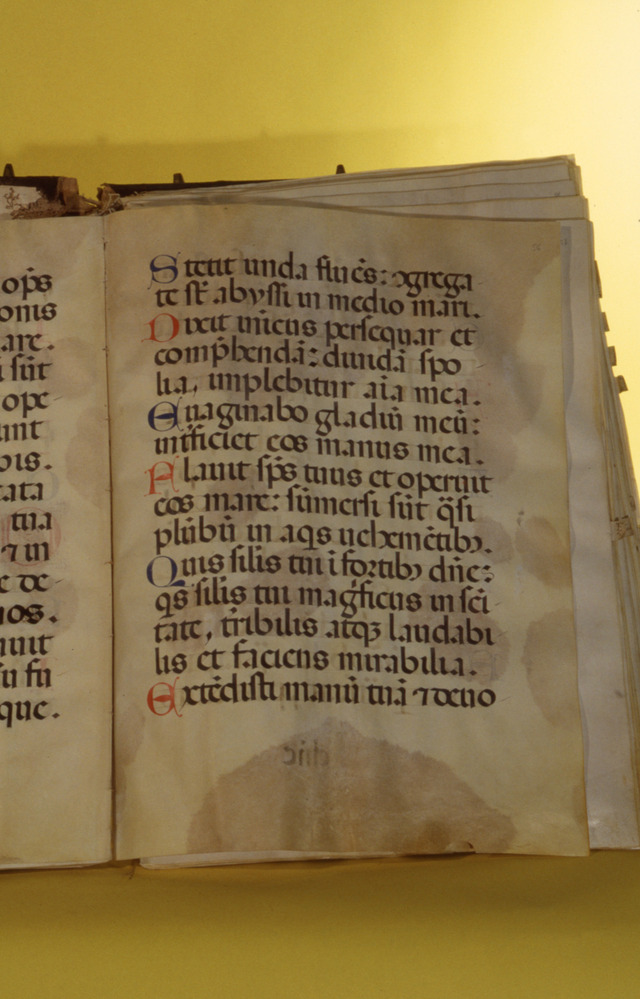 op̄s
onis
are.
sūt
ope
unt
ois.
tata
tua
⁊ in
e de
nos.
nuit
su fu
que.
Stetit unda flués: ꝯgrega
te st̄ abyssi in medio mari.
Dixit inicus persequar et
comp̄hendā: diuidā spo
lia, implebitur aīa mea.
Euaginabo gladiū meū:
int̄ficiet eos manus mea.
Flauit sp̄s tuus et operuit
eos mare: sūmersi sūt q̄si
plūbū in aq̄s uehemētibꝫ.
Quis silis tui ī fortibꝫ dn̄e:
q̄s silis tui mag̅ficus in sc̄i
tate, t̄ribilis atqꝫ laudabi
lis et faciens mirabilia.
Extēdisti manū tuā ⁊ deuo